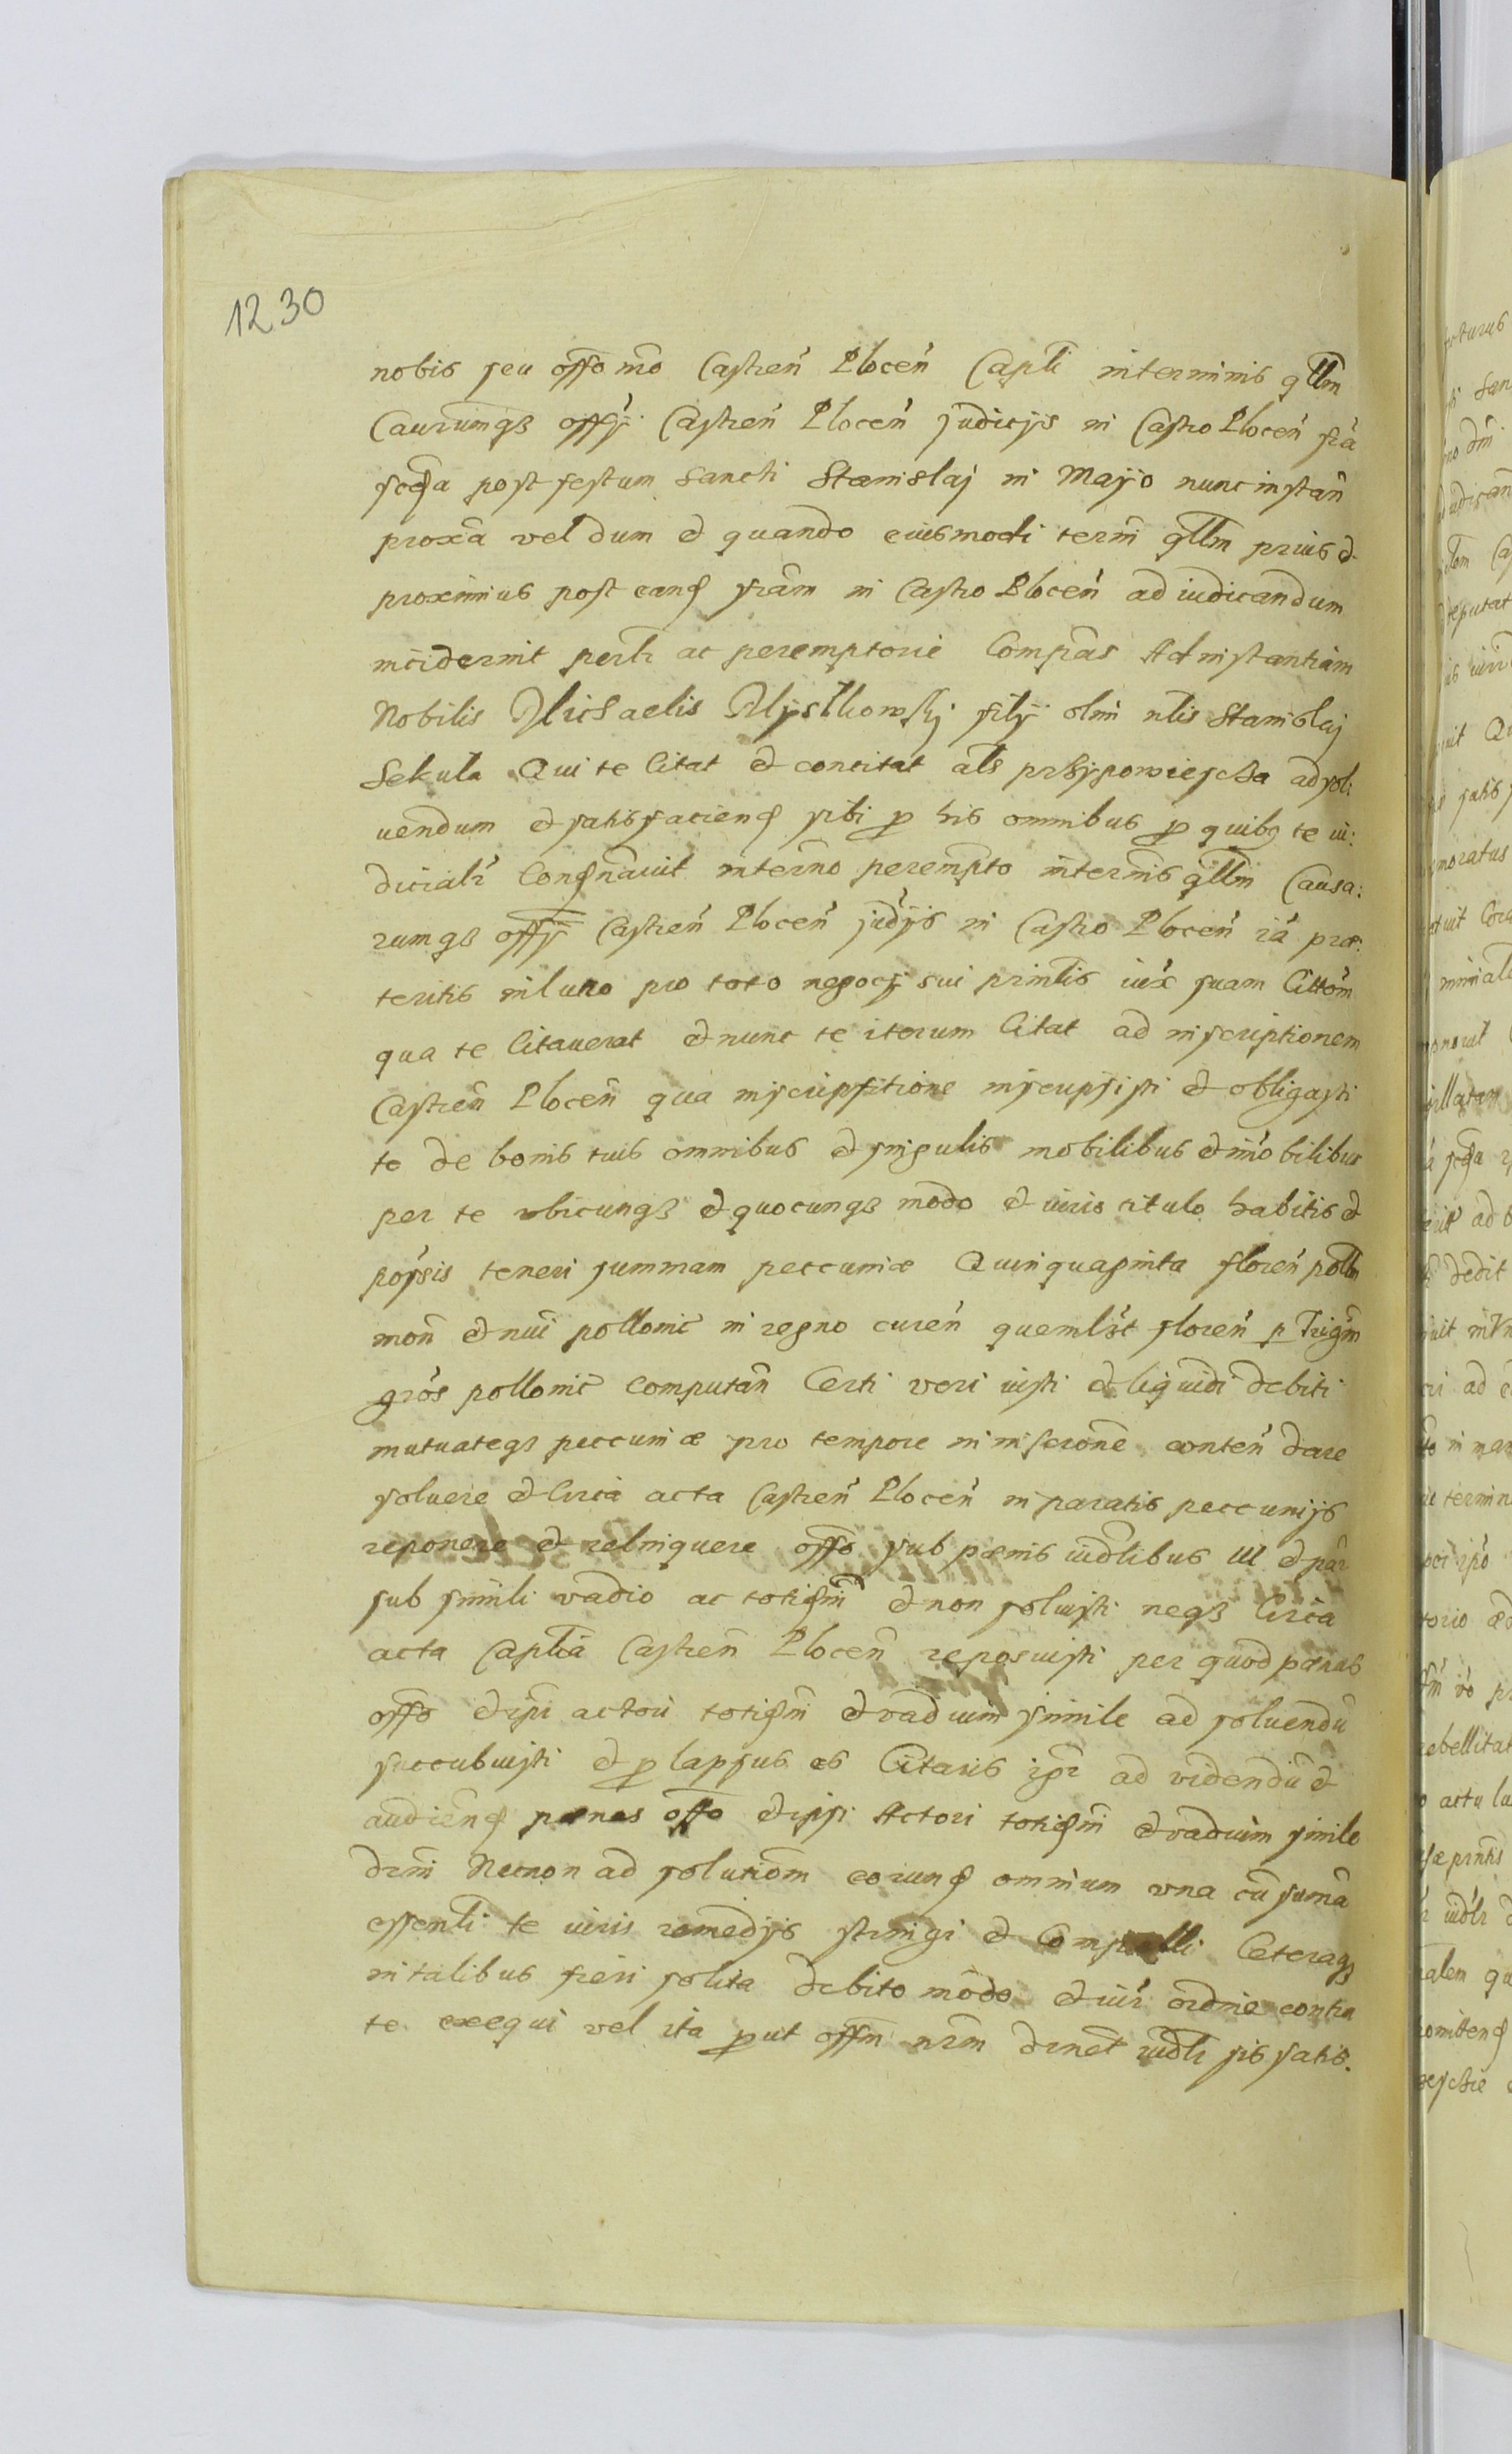 1230
nobis seu offo nrō Castreñ Ploceñ Capli in terminis qllm
Caurumqз offÿ Castreñ Ploceñ judicÿs in Castro Ploceñ fr̃a
scđa post festum Sancti Stanislaj in Mayo nunc instan̄
proxa vel dum et quando eiusmodi termi qllm prius et
proximius post eand fr̃am in Castro Ploceñ ad iudicandum
inciderint perltr ac peremptorie Compãs Ad instantiam
Nobilis Michaelis Myslkowskj filÿ olim nlis Stanislaj
Sekula Qui te Citat et concitat als przypowiescza ad sol:
uendum et satisfaciend sibi p his omnibus p quibз te iu:
dicialr Condnauit in termo perempto in termis qllm Causa:
rumqз offÿ Castreñ Ploceñ judÿs in Castro Ploceñ ia præ:
teritis in luno pro toto negocÿ sui printis iux suam Cittom
qua te Citauerat et nunc te iterum Citat ad inscriptionem
Castreñ Ploceñ qua inscripsitione inscripsisti et obligasti
te de bonis tuis omnibus et singulis mobilibus et imobilibus
per te ubicunqз et quocunqз modo et iuris titulo habitis et
possis teneri summam peccuniæ Quinquaginta floreñ pollm
moñ et nui pollonic in regno cureñ quemlbt floreñ p Trigm
gros pollonic computan Certi veri iusti et liquidi debiti
mutuateqз peccuniæ pro tempore in inscrone conteñ dare
soluere et Circa acta Castreñ Ploceñ in paratis peccunijs
reponere et relinquere offo sub pœnis iudlibus III et par
sub simili vadio ac totidm et non soluisti neqз Circa
acta Caplia Castreñ Ploceñ reposuisti per quod pœnas
offo et ipi actori totidm et vadium simile ad soluendu
succubuisti et p lapsus es Citaris igr ad videndu et
audiend pœnas offo et ipsi Actori totidm et vadium simile
drm Necnon ad solutiom eorund omnium vna cu suma
essentli te iuris remedÿs stringi et Compelli Ceteraqз
in talibus fieri solita debito modo et iur ordine contra
te exequi vel ita put offm nrm drnet iudlr sis satis.